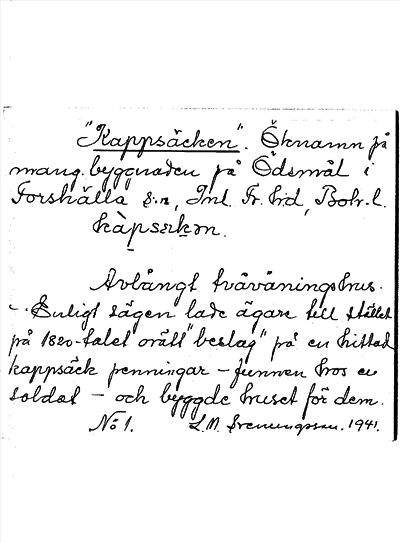 "Kappsäcken". Öknamn på
mang.byggnaden på Ödsmål i
Forshälla s:n, Inl. Fr. h:d, Boh. l.
kàpsɛkən.
Avlångt tvåvåningshus.
– Enligt sägen lade ägare till stället
på 1820-talet orätt "beslag" på en hittad
kappsäck penningar – funnen hos en
soldat – och byggde huset för dem.
No 1. L.M. 1941.